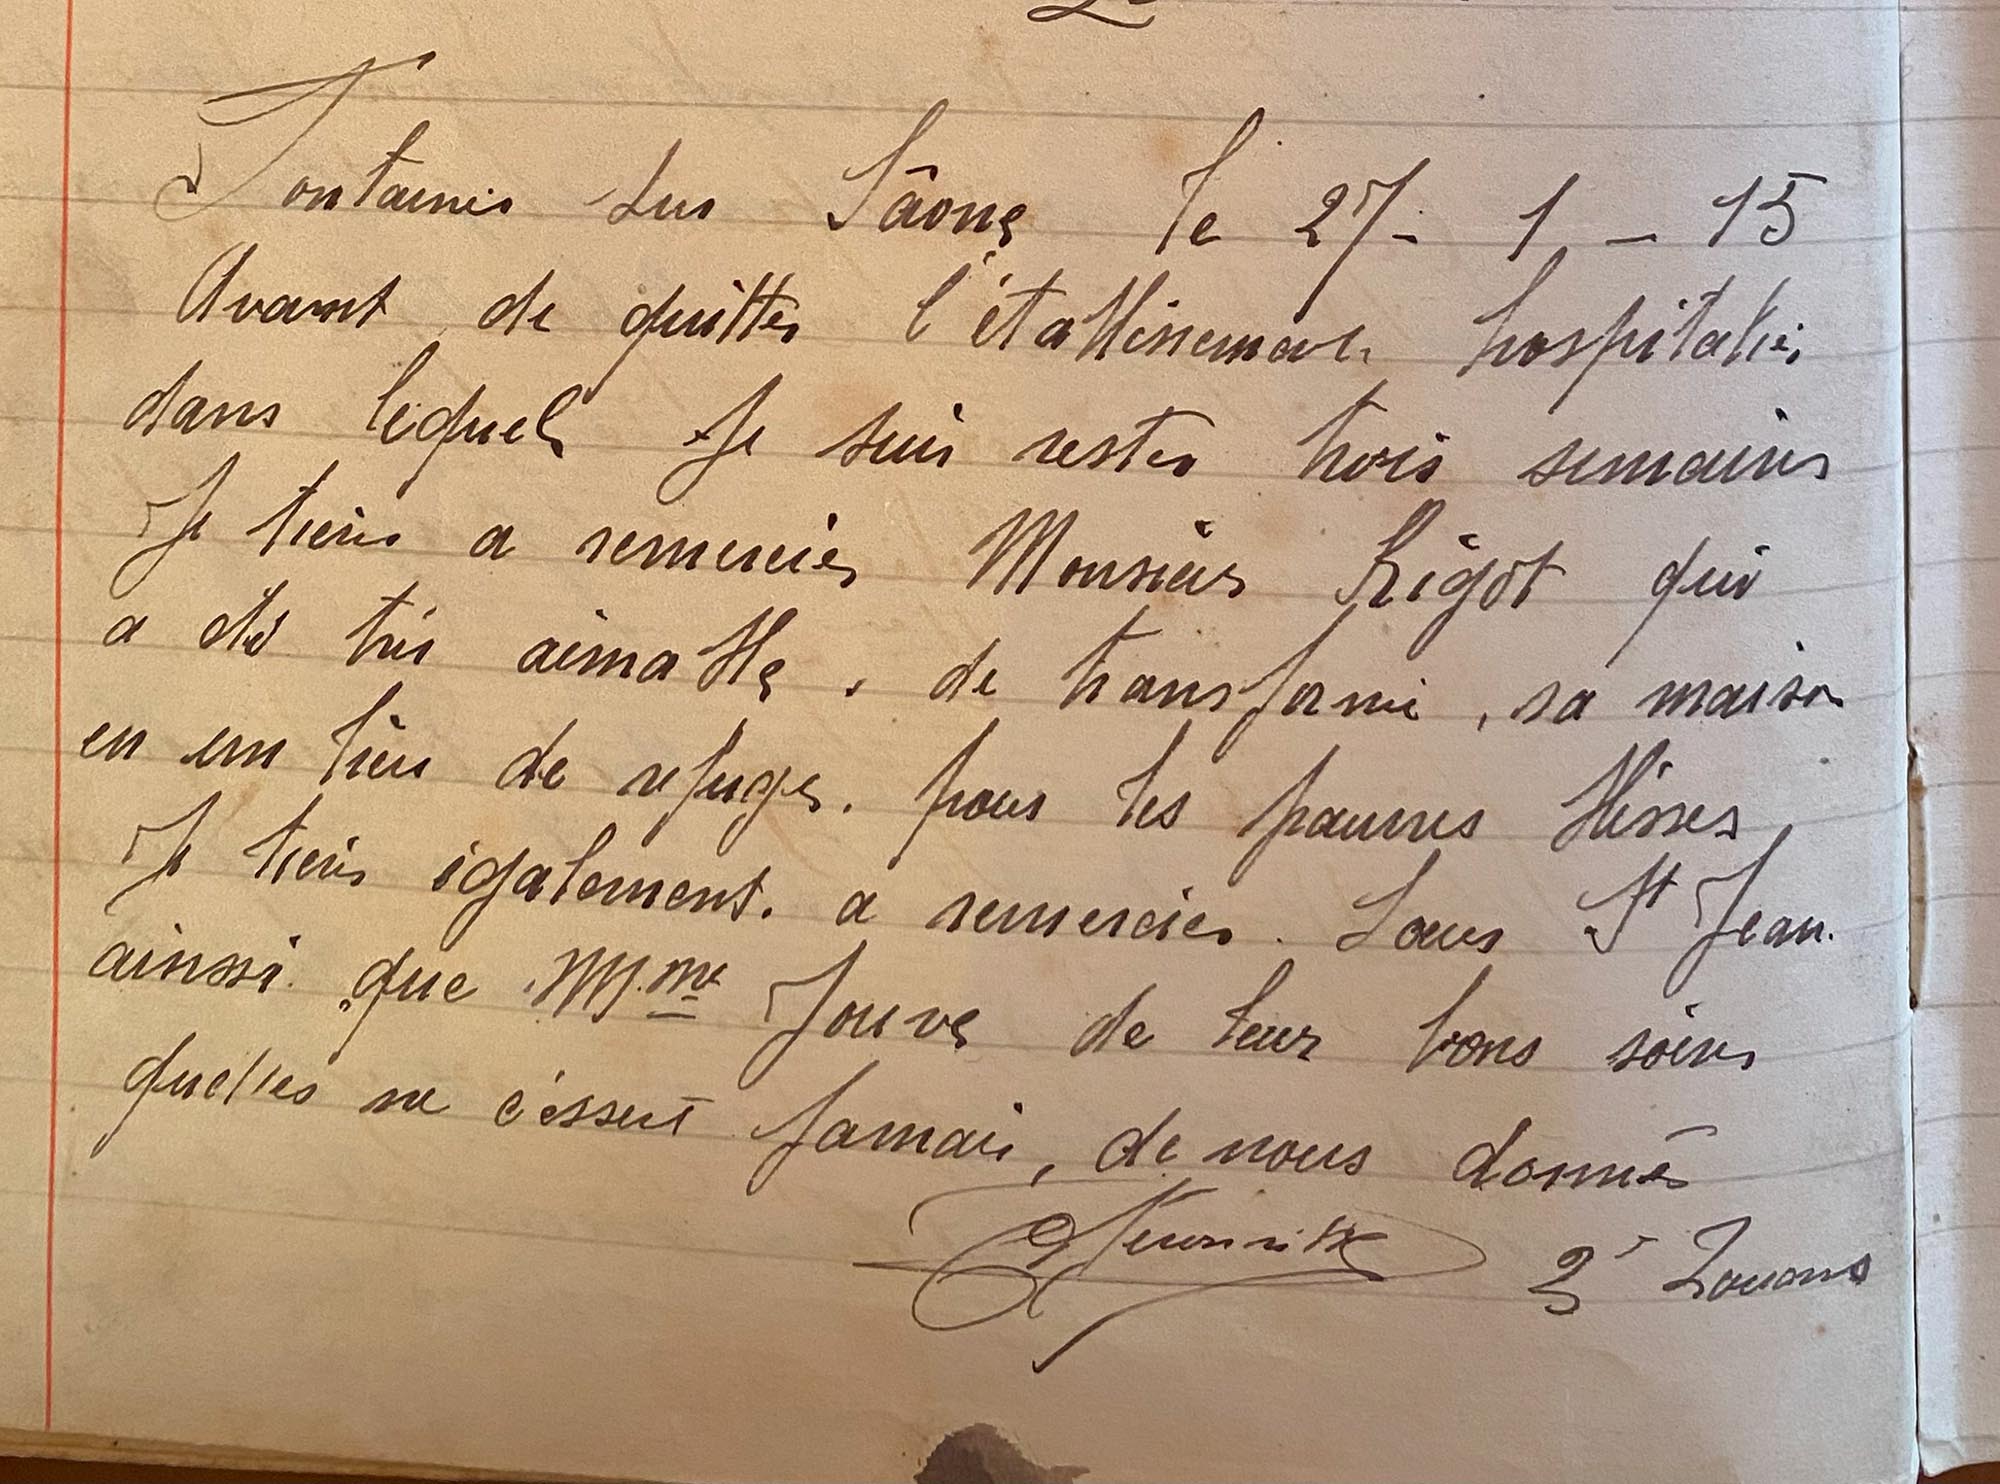 Fontaines sur Sâone le 27 - 1 - 15
Avant de quitter l'établissement hospitalier
dans lequel Je suis rester trois semaines
Je tiens a remercier Monsieur Rigot qui
a été très aimable, de transformé, sa maison
en un lieu de refuge. pour les pauvres blésses,
Je tiens également. a remercier. Sœur St Jean.
ainssi. que M.me Jouve de leur bons soins
quelles ne céssent Jamais, de nous donnés
3e Zouaves